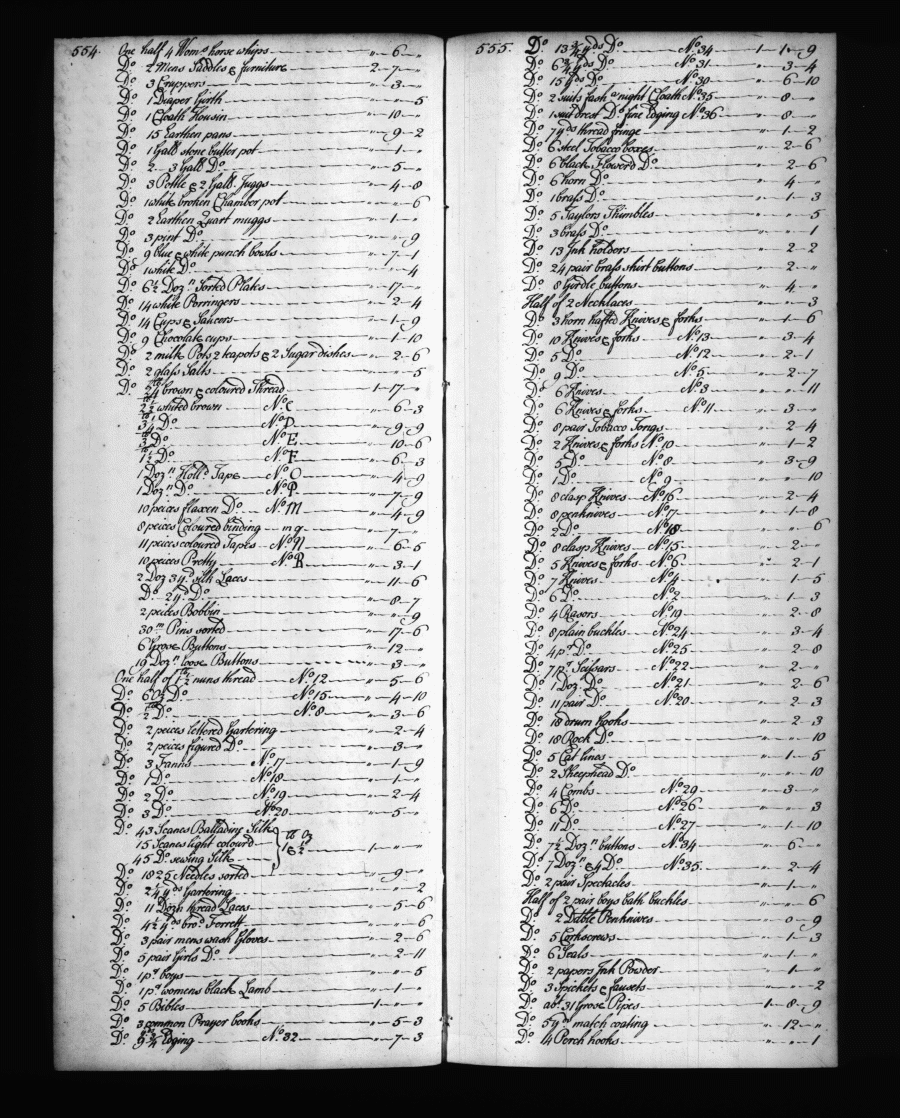 554. One half 4 Wom.s horse whips " 6 "
D.o 2 Mens Saddles & furniture 2 - 7 - "
D.o 3 Crappers " 3 "
D.o 1 Diaper Girth " " 5
D.o 1 Cloath Housin " 10 "
D.o 15 Earthen pans " 9 - 2
D.o 1 Gall.o stone butter pot " 1 "
D.o 2 - 3 Gall D.o " 5 "
D.o 3 Pottle & 2 Gall.o Juggs " 4 - 8
D.o 1 white broken Chamber pot " " 6
D.o 2 Earthen Quart muggs " 1 "
D.o 3 pint D.o " " 9
D.o 9 blue & white punch bowls " 7 - 1
D.o 1 white D.o " " 4
D.o 6½ Doz.n Sorted Plates " 17 "
D.o 14 white Porringers " 2 - 4
D.o 14 Cups & Saucers " 1 - 9
D.o 9 Chocolate cups " 1 - 10
D.o 2 milk Pots 2 teapots & 2 Sugar dishes " 2 - 6
D.o 2 glass Salts " " 5
D.o brown & coloured Thread 1 - 17 "
2½ whited brown N.o C " 6 - 3
D.o N.o D " 9 - 9
3 D.o N.o E " 10 - 6
1½ D.o N.o F " 6 - 3
1 Doz.n Holl.d Tape N.o O " 4 - 9
1 Doz.n D.o N.o P " 7 - 9
10 peices flaxen D.o N.o M " 4 - 9
8 peices Coloured binding m q " 7 "
11 peices coloured Tapes N.o N " 6 - 5
10 peices Pretty N.o R " 3 - 1
2 Doz 3 4.d silk Laces " 11 - 6
D.o 2 4.d D.o " 8 - 7
2 peices Bobbin " " 9
30.m Pins sorted " 17 - 6
6 Grose Buttons " 12 "
19 Doz.n loose Buttons " 3 "
One half of 1½ nuns thread N.o 12 " 5 - 6
D.o 6 Oz D.o N.o 15 " 4 - 10
D.o ½ D.o N.o 8 " 3 - 6
D.o 2 peices lettered Gartering " 2 - 4
D.o 2 peices figured D.o " 3 "
D.o 3 Fanns N.o 17 " 1 - 9
D.o 1 D.o N.o 18 " 1 "
D.o 2 D.o N.o 19 " 2 - 4
D.o 3 D.o N.o 20 " 5 "
D.o 43 Scanes Balladine Silk
15 Scanes light coloured 1 "
45 D.o sewing Silk
D.o 1825 Needles sorted " 9 "
D.o 2¼ y.ds Gartering " " 2
D.o 11 Dozn thread Laces " 5 - 6
D.o 4½ y.ds bro.d Forrett " " 6
D.o 3 pair mens wash Gloves " 2 - 6
D.o 5 pair Girls D.o " 2 - 11
D.o 1 p.r boys " " 5
D.o 1 p.r womens black Lamb " 1 "
D.o 5 Bibles 1 "
D.o 3 common Prayer books " 5 - 3
D.o 9¾ Edging N.o 32 " 7 - 3
555. D.o 13¾ y.ds D.o N.o 34 1 - 1 - 9
D.o 6¾ y.ds D.o N.o 31 " 3 - 4
D.o 15 y.ds D.o N.o 30 " 6 - 10
D.o 2 suits fash.o night Cloath N.o 35 " 8 "
D.o 1 suit drest D.o fine Edging N.o 36 " 8 "
D.o 7 y.ds thread fringe " 1 - 2
D.o 6 Steel Tobacco boxes " 2 - 6
D.o 6 black Flowerd D.o " 2 - 6
D.o 6 horn D.o " 4 "
D.o 1 brass D.o " 1 - 3
D.o 5 Taylors Thimbles " " 5
D.o 3 brass D.o " " 1
D.o 13 Ink holders " 2 - 2
D.o 24 pair brass shirt buttons " 2 "
D.o 8 Girdle buttons " 4 "
Half of 2 Necklaces " " 3
D.o 3 horn hafted Knives & forks " 1 - 6
D.o 10 Knives & forks N.o 13 " 3 - 4
D.o 5 D.o N.o 12 " 2 - 1
D.o 9 D.o N.o 5 " 2 - 7
D.o 6 Knives N.o 3 " " 11
D.o 6 Knives & forks N.o 11 " 3 "
D.o 8 pair Tobacco Tongs " 2 - 4
D.o 2 Knives & forks N.o 10 " 1 - 2
D.o 5 D.o N.o 8 " 3 - 9
D.o 1 D.o N.o 9 " " 10
D.o 8 clasp Knives N.o 16 " 2 - 4
D.o 8 penknives N.o 17 " 1 - 8
D.o 2 D.o N.o 18 " " 6
D.o 8 clasp Knives N.o 15 " 2 "
D.o 5 Knives & forks N.o 6 " 2 - 1
D.o 7 Knives N.o 4 " 1 - 5
D.o 6 D.o N.o 2 " 1 - 3
D.o 4 Rasors N.o 19 " 2 - 8
D.o 8 plain buckles N.o 24 " 3 - 4
D.o 4 p.r D.o N.o 25 " 2 - 8
D.o 7 p.r Scissars N.o 22 " 2 "
D.o 1 Doz. D.o N.o 21 " 2 - 6
D.o 11 pair D.o N.o 20 " 2 - 3
D.o 18 drum hooks " 2 - 3
D.o 18 Rock D.o " " 10
D.o 5 Cat lines " 1 - 5
D.o 2 Sheephead D.o " " 10
D.o 4 Combs N.o 29 " 3 "
D.o 6 D.o N.o 26 " " 3
D.o 11 D.o N.o 27 " 1 - 10
D.o 7½ Doz.n buttons N.o 34 " 6 "
D.o 7 Doz.n & 4 D.o N.o 35 " 2 - 4
D.o 2 pair Spectacles " 1 "
Half of 2 pair boys bath buckles " " 6
D.o 2 Dable Penknives " 0 - 9
D.o 5 Corkscrews " 1 - 3
D.o 6 Seals " 1 "
D.o 2 papers Ink Powder " 1 "
D.o 3 Spickets & fausets " " 2
D.o ab.t 31 Grose Pipes 1 - 8 - 9
D.o 5 y.ds match coating " 12 "
D.o 14 Perch hooks " " 1